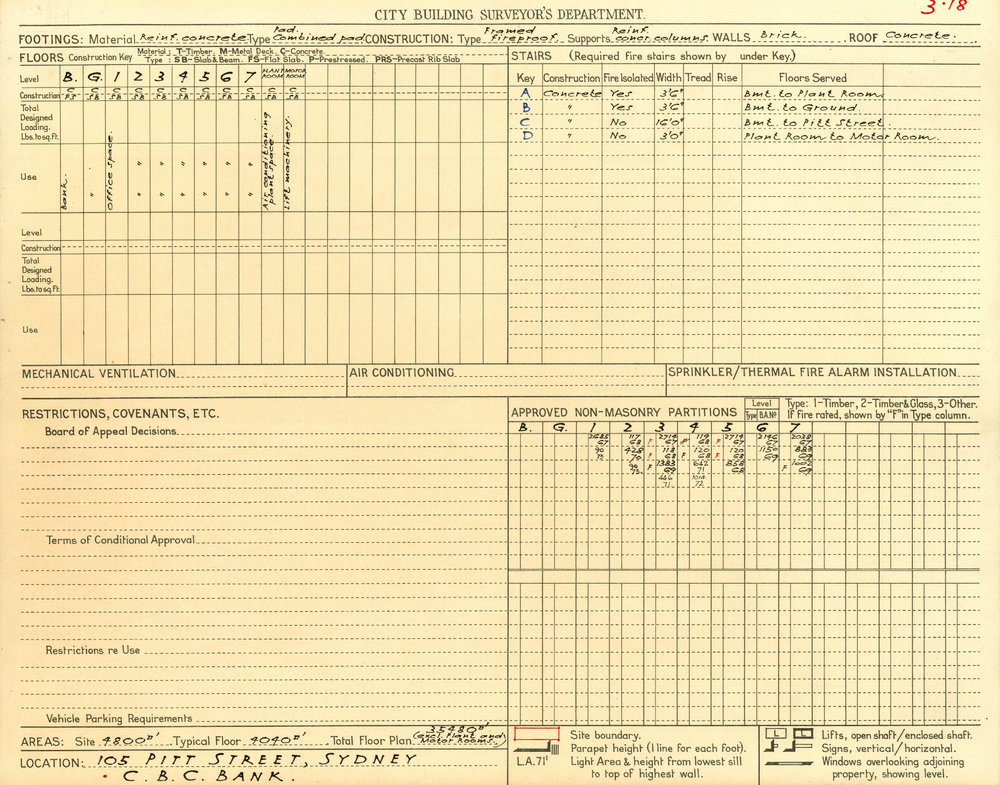 3.18
CITY BUILDING SURVEYOR'S DEPARTMENT.
FOOTINGS: Material Reinf. concrete Type Pad. Combined pad CONSTRUCTION: Type Framed Fireproof. Supports Reinf. concr. columns. WALLS Brick. ROOF Concrete.
FLOORS Construction Key Material: T-Timber. M-Metal Deck. C-Concrete.
Type: SB-Slab & Beam. FS-Flat Slab. P-Prestressed. PRS-Precast Rib Slab
Level B. G. 1 2 3 4 5 6 7 PLANT ROOM MOTOR ROOM
Construction C FS C SB C SB C SB C SB C SB C SB C SB C SB C SB C SB
Total Designed Loading. Lbs. to sq. ft.
Use Bank. " Office space " " " " " " Air conditioning plant space. Lift machinery.
Level
Construction
Total Designed Loading. Lbs. to sq. ft.
Use
STAIRS (Required fire stairs shown by under Key.)
Key Construction Fire Isolated Width Tread Rise Floors Served
A Concrete Yes 3'6" Bmt. to Plant Room
B " Yes 3'6" Bmt. to Ground.
C " No 16'0" Bmt. to Pitt Street.
D " No 3'0" Plant Room to Motor Room.
MECHANICAL VENTILATION
AIR CONDITIONING
SPRINKLER/THERMAL FIRE ALARM INSTALLATION
RESTRICTIONS, COVENANTS, ETC.
Board of Appeal Decisions
Terms of Conditional Approval
Restrictions re Use
Vehicle Parking Requirements
APPROVED NON-MASONRY PARTITIONS Level Type B.A.Nº Type: 1-Timber, 2-Timber & Glass, 3-Other.
If Fire rated, shown by "F" in Type column.
B. G. 1 2 3 4 5 6 7
2685 67 117 68 F 2714 67 F 119 68 F 2714 67 2146 67 2038 67
90 73 425 70 F 118 68 F 120 68 F 120 68 1156 69 883 69
90 73 F 1383 69 642 71 858 68 F 1002 69
446 71 1014 72
AREAS: Site 4800□' Typical Floor 4040□' Total Floor Plan 35480□' (excl. Plant and Motor Rooms.)
LOCATION: 105 PITT STREET, SYDNEY
C.B.C. BANK.
Site boundary.
Parapet height (1 line for each foot).
L.A. 71' Light Area & height from lowest sill
to top of highest wall.
L Lifts, open shaft/enclosed shaft.
Signs, vertical/horizontal.
Windows overlooking adjoining
property, showing level.